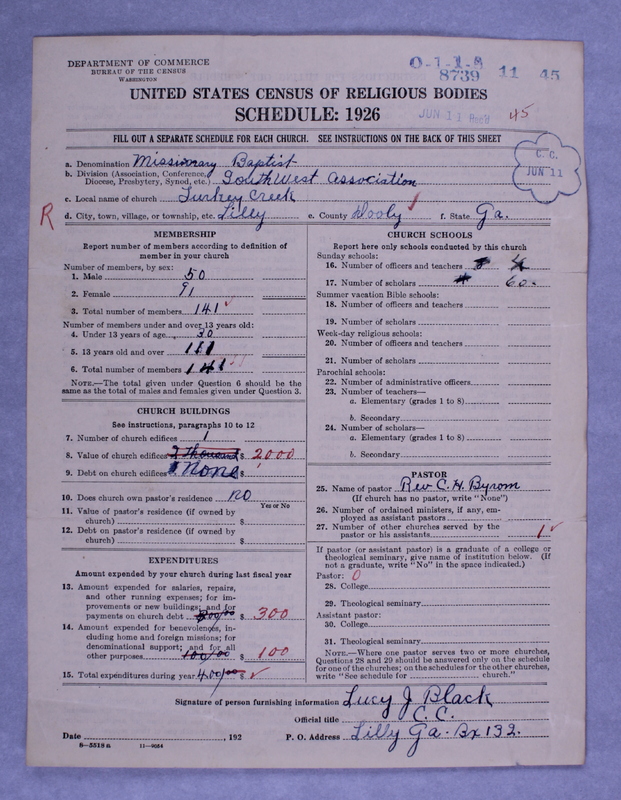 DEPARTMENT OF COMMERCE
BUREAU OF THE CENSUS
WASHINGTON
0-1-1-8
8739 11 45
UNITED STATES CENSUS OF RELIGIOUS BODIES
SCHEDULE: 1926
JUN 11 45
FILL OUT A SEPARATE SCHEDULE FOR EACH CHURCH. SEE INSTRUCTIONS ON THE BACK OF THIS SHEET
C. C.
JUN 11
a. Denomination Missionary Baptist
b. Division (Association, Conference, Diocese, Presbytery, Synod, etc.) SouthWest Association
c. Local name of church Turkey Creek
R d. City, town, village, or township, etc. Lilly e. County Dooly f. State Ga.
MEMBERSHIP
Report number of members according to definition of
member in your church
Number of members, by sex:
1. Male 50
2. Female 91
3. Total number of members 141
Number of members under and over 13 years old:
4. Under 13 years of age 30
5. 13 years old and over 111
6. Total number of members 141
NOTE.—The total given under Question 6 should be the
same as the total of males and females given under Question 3.
CHURCH BUILDINGS
See instructions, paragraphs 10 to 12
7. Number of church edifices 1
8. Value of church edifices 2 Thousand $ 2000
9. Debt on church edifices $ None
10. Does church own pastor's residence no
Yes or No
11. Value of pastor's residence (if owned by
church) $
12. Debt on pastor's residence (if owned by
church) $
EXPENDITURES
Amount expended by your church during last fiscal year
13. Amount expended for salaries, repairs,
and other running expenses; for im-
provements or new buildings; and for
payments on church debt $ 300
14. Amount expended for benevolences, in-
cluding home and foreign missions; for
denominational support; and for all
other purposes 100/00 $ 100
15. Total expenditures during year 400/00 $
CHURCH SCHOOLS
Report here only schools conducted by this church
Sunday schools:
16. Number of officers and teachers 4
17. Number of scholars 60
Summer vacation Bible schools:
18. Number of officers and teachers
19. Number of scholars
Week-day religious schools:
20. Number of officers and teachers
21. Number of scholars
Parochial schools:
22. Number of administrative officers
23. Number of teachers—
a. Elementary (grades 1 to 8)
b. Secondary
24. Number of scholars—
a. Elementary (grades 1 to 8)
b. Secondary
PASTOR
25. Name of pastor Rev C. H. Byrom
(If church has no pastor, write "None")
26. Number of ordained ministers, if any, em-
ployed as assistant pastors
27. Number of other churches served by the
pastor or his assistants 1
If pastor (or assistant pastor) is a graduate of a college or
theological seminary, give name of institution below. (If
not a graduate, write "No" in the space indicated.)
Pastor: 0
28. College
29. Theological seminary
Assistant pastor:
30. College
31. Theological seminary
NOTE.—Where one pastor serves two or more churches,
Questions 28 and 29 should be answered only on the schedule
for one of the churches; on the schedules for the other churches,
write "See schedule for church."
Signature of person furnishing information Lucy J Black
Official title C. C.
Date , 192 P. O. Address Lilly Ga. Bx 132.
8—5518 a 11—9054